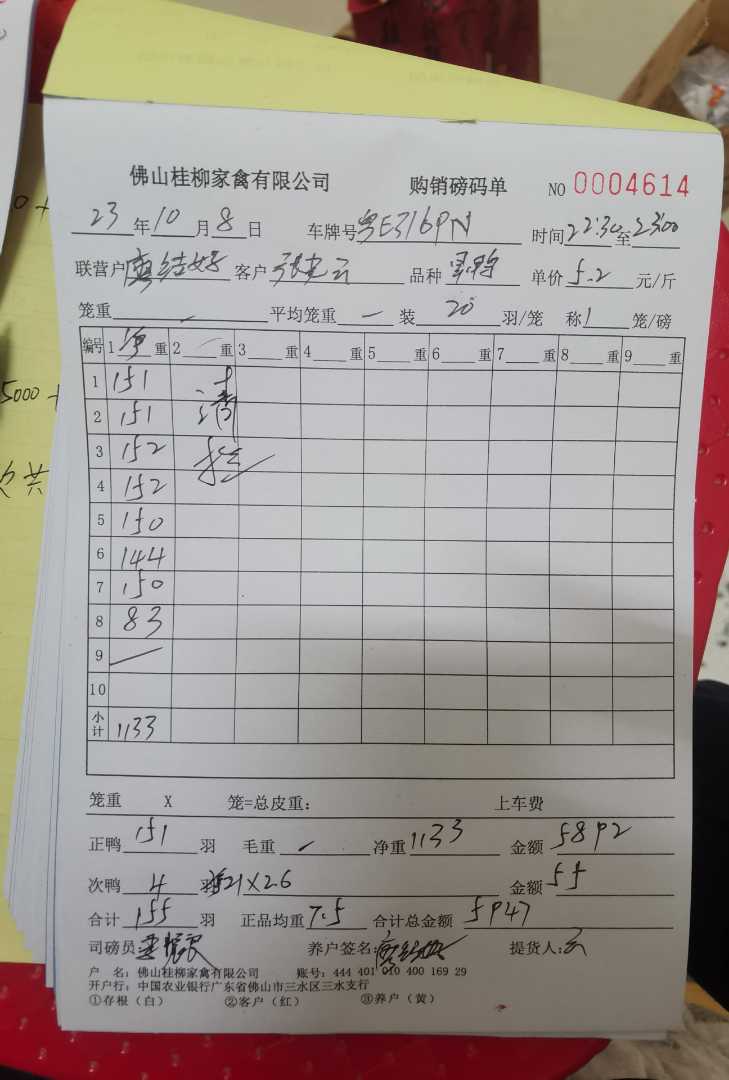 佛山桂柳家禽有限公司 购销磅码单 NO 0004614
23年10月8日 车牌号粤E3169N 时间22:30至23:00
联营户 客户 品种 单价5.2元/斤
笼重 平均笼重 装20羽/笼 称1笼/磅
编号 1净重 2重 3重 4重 5重 6重 7重 8重 9重
1 151
2 151 清
3 152
4 152
5 150
6 144
7 150
8 83
9
10
小计 1133
笼重 X 笼=总皮重: 上车费
正鸭151羽 毛重 净重1133 金额5892
次鸭4羽 21X2.6 金额55
合计155羽 正品均重7.5 合计总金额5947
司磅员 养户签名: 提货人:云
户 名: 佛山桂柳家禽有限公司 账号: 444 401 010 400 169 29
开户行: 中国农业银行广东省佛山市三水区三水支行
①存根(白) ②客户(红) ③养户(黄)
5000+
共